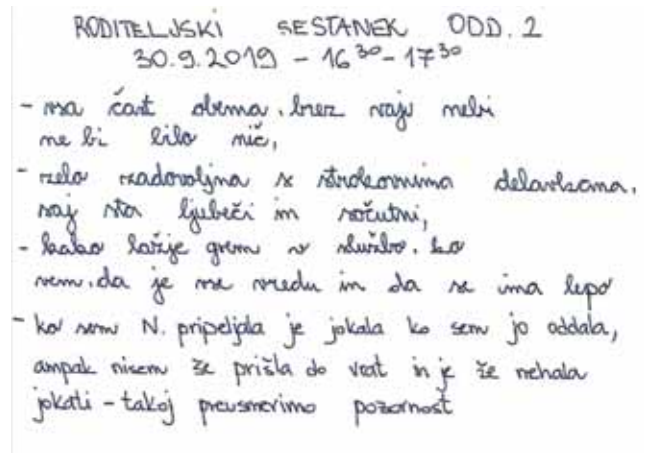 RODITELJSKI SESTANEK ODD. 2
30.9.2019 - 16³⁰-17³⁰
- vsa čast obema, brez vaju nebi
ne bi bilo nič,
- zelo zadovoljna s strokovnima delavkama,
saj sta ljubeči in sočutni,
- kako lažje grem v službo, ko
vem, da je vse vredu in da se ima lepo
- ko sem N. pripeljala je jokala ko sem jo oddala,
ampak nisem še prišla do vrat in je že nehala
jokati - takoj preusmerimo pozornost